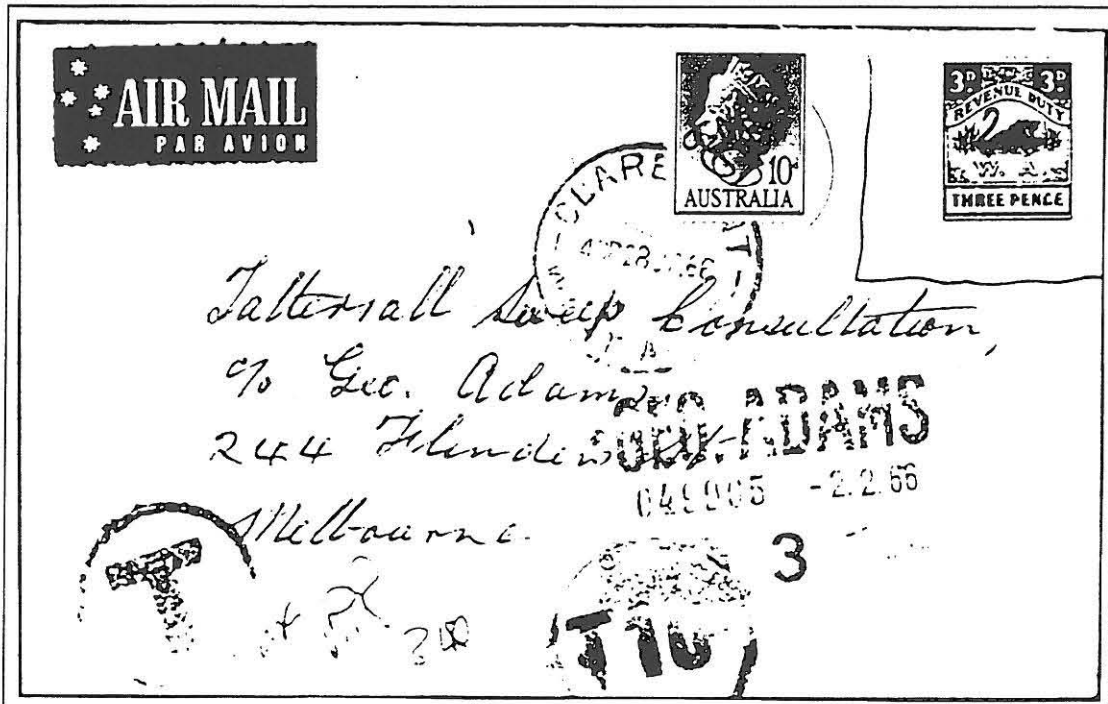 AIR MAIL
PAR AVION
10d
AUSTRALIA
3D 3D
REVENUE DUTY
W. A.
THREE PENCE
Tattersall Sweep Consultation,
c/o Geo. Adams
244 Flinders
Melbourne.
GEO. ADAMS
-2.2.66
3
T